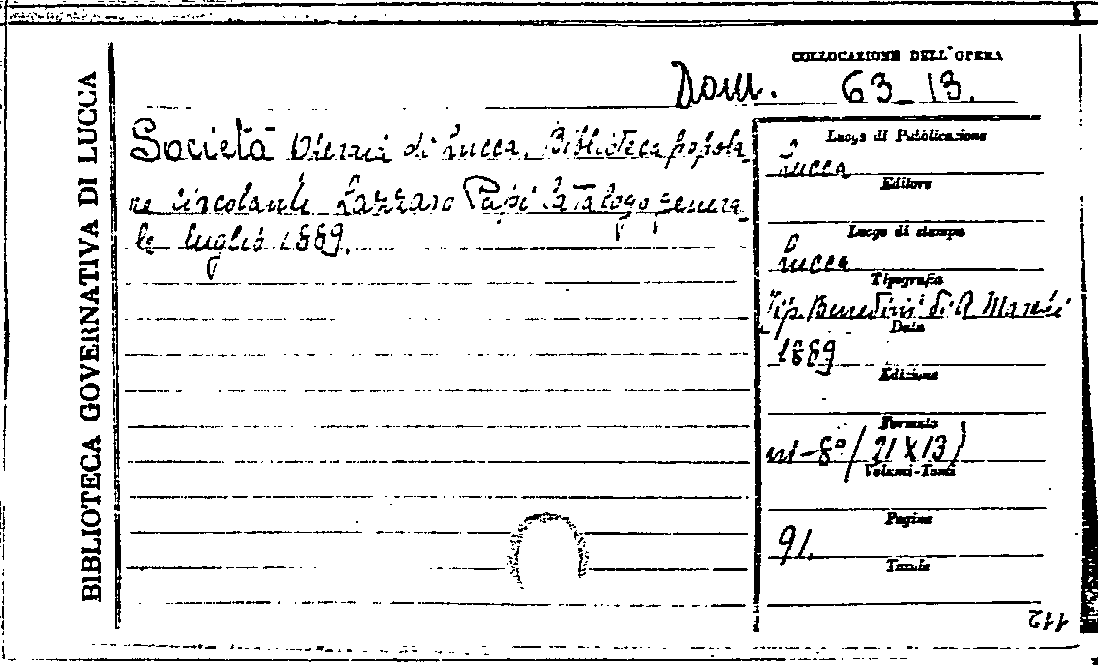 BIBLIOTECA GOVERNATIVA DI LUCCA
COLLOCAZIONE DELL'OPERA
Dom. 63-13.
Società Operaia di Lucca. Biblioteca popola
re circolante Lazzaro Papi Catalogo genera
le luglio 1889.
Luogo di Pubblicazione
Lucca
Editore
Luogo di stampa
Lucca
Tipografia
Tip. Benedini di R.
Data
1889
Edizione
Formato
in-8° (21 X 13)
Volumi-Tomi
Pagine
91.
Tavole
112